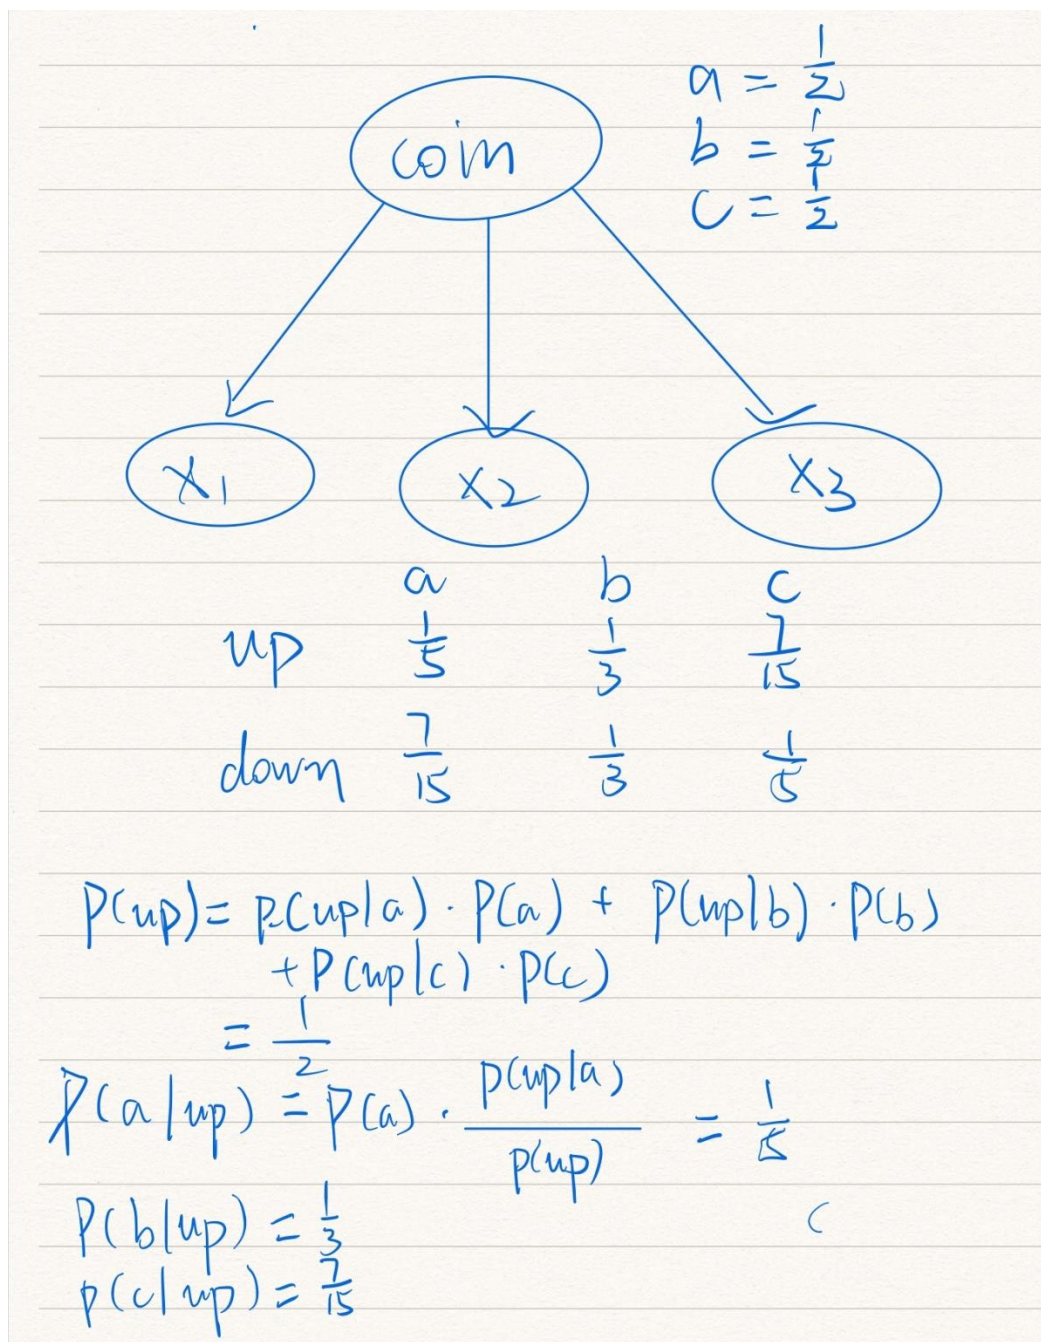 a = 1/2
coin
b = 1/2
c = 1/2
x1 x2 x3
a b c
up 1/5 1/3 7/15
down 7/15 1/3 1/5
P(up) = P(up|a) · P(a) + P(up|b) · P(b)
+ P(up|c) · P(c)
= 1/2
P(a|up) = P(a) · p(up|a)/p(up) = 1/5
P(b|up) = 1/3
p(c|up) = 7/15